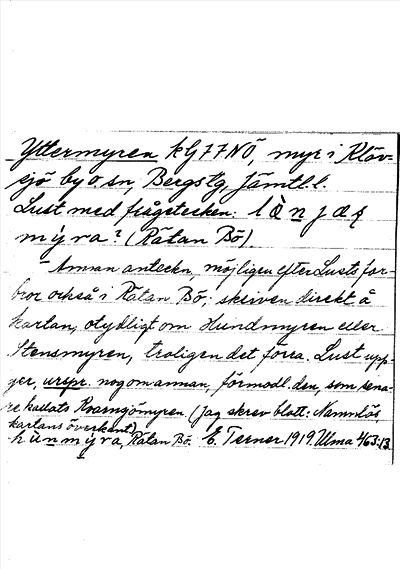 Yttermyren kG77NÖ, myr i Klöv-
sjö by o. sn, Bergs tg, Jämtl. l.
Lust med frågetecken:
mýra? (Rätan Bö)
Annan anteckn, möjligen efter Lusts far-
bror också i Rätan Bö, skriven direkt å
kartan, otydligt om Hundmyren eller
Stensmyren, troligen det förra. Lust upp-
ger, urspr. nog om annan, förmodl. den, som sena-
re kallats Roamsjömyren. (Jag skrev blott: Namnlös,
kartans överkant)
hùnmýra, Rätan Bö. E. Terner 1919. Ulma 463:13.